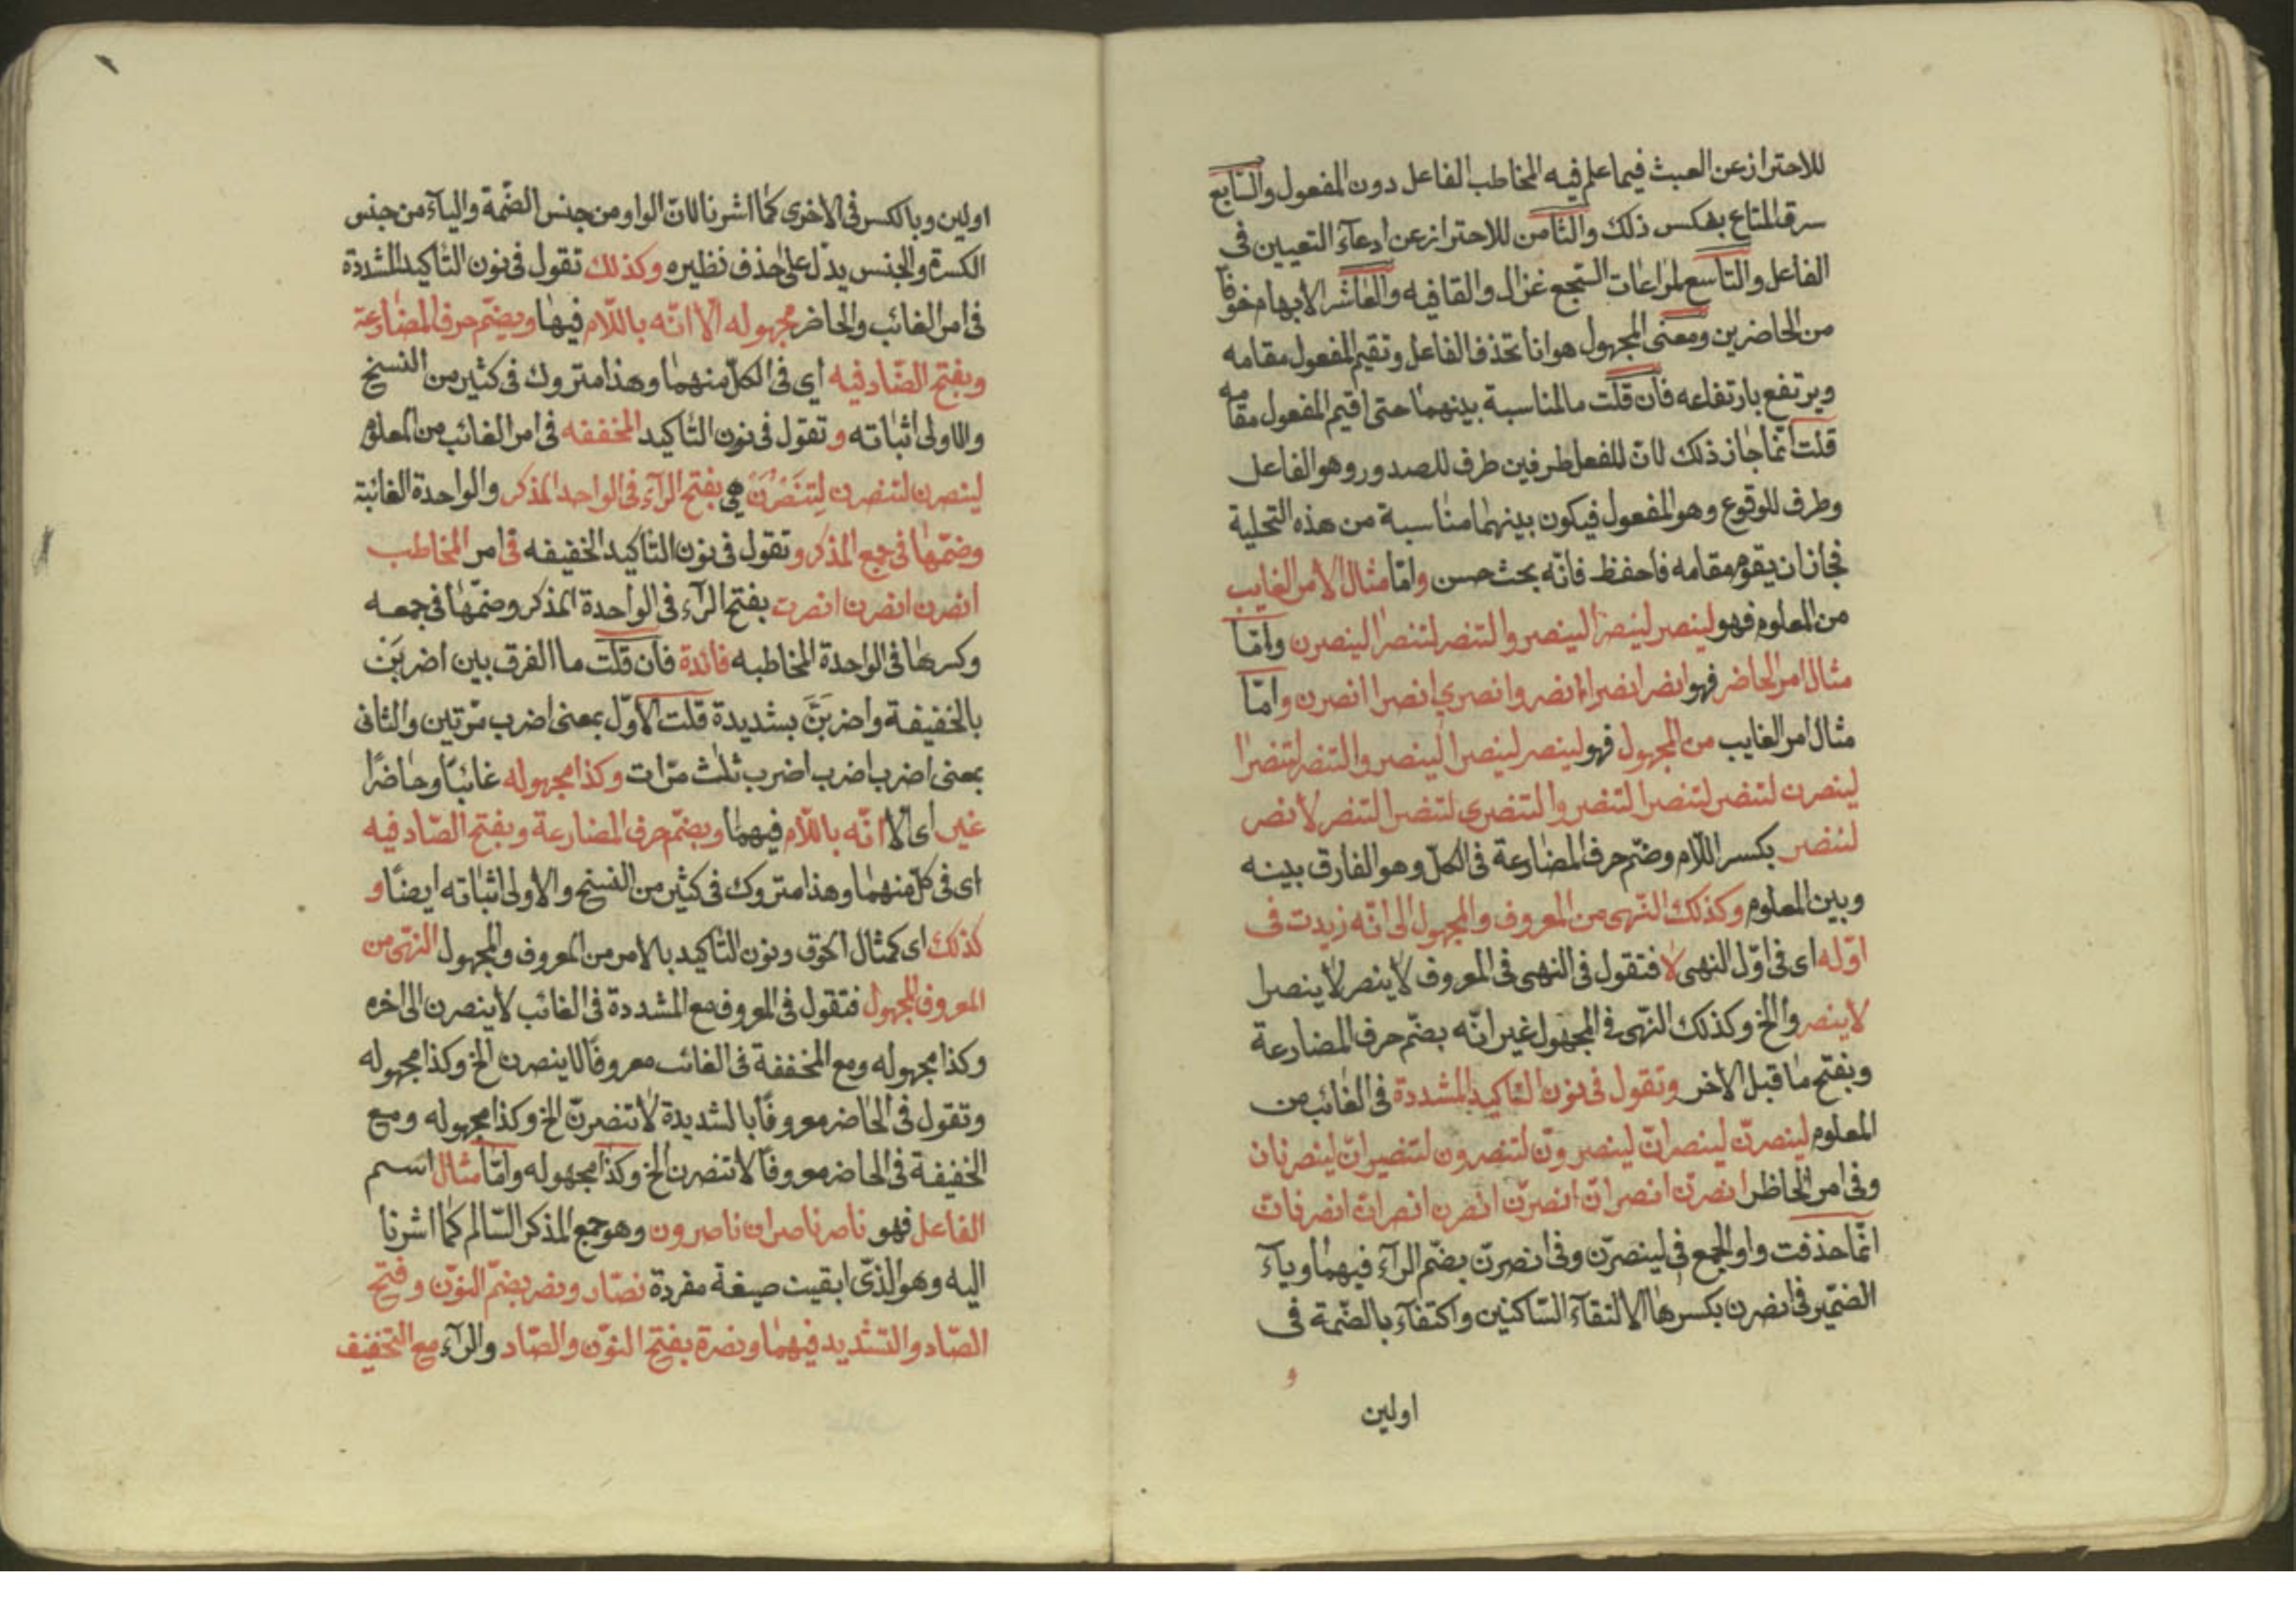 للاحتراز عن العبث فيما علم فيه المخاطب الفاعل دون المفعول والسّابع
سرق المتاع بعكس ذلك والثامن للاحتراز عن ادعآء التعيين فى
الفاعل والتاسع لمراعات السّجع غزال والقافيه والعاشر الابهام خوفًا
من الحاضرين ومعنى المجهول هو ان تحذف الفاعل وتقيم المفعول مقامه
ويرتفع بارتفاعه فان قلت ما المناسبة بينهما حتى اقيم المفعول مقامه
قلت انّما جاز ذلك لانّ للفعل طرفين طرف للصدور وهو الفاعل
وطرف للوقوع وهو المفعول فيكون بينهما مناسبة من هذه التحلية
فجاز ان يقوم مقامه فاحفظ فانّه بحث حسن وامّا مثال الامر الغايب
من المعلوم فهو لينصر لينصرا لينصروا لتنصر لتنصرا لينصرن وامّا
مثال امر الحاضر فهو انصر انصرا انصروا انصري انصرا انصرن وامّا
مثال امر الغايب من المجهول فهو لينصر لينصرا لينصروا لتنصر لتنصرا
لينصرن لتنصر لتنصرا لتنصروا لتنصرى لتنصرا لتنصر لانصر
لننصر بكسر اللّام وضم حرف المضارعة فى الكلّ وهو الفارق بينه
وبين المعلوم وكذلك النّهى من المعروف والمجهول الى انّه زيدت فى
اوّله اى فى اوّل النهى لا فتقول فى النهى فى المعروف لا ينصر لا ينصرا
لا ينصروا الخ وكذلك النّهى فى المجهول غير انّه بضّم حرف المضارعة
وبفتح ما قبل الاخر وتقول فى نون التاكيد المشددة فى الغائب من
المعلوم لينصرنّ لينصرانّ لينصرونّ لتنصرون لتنصرانّ لينصرنان
وفى امر الحاظر انصرن انصرانّ انصرنّ انصرن انصران انصرنات
انّما حذفت واو الجمع فى لينصرّن وفى انصرنّ بضّم الرآء فيهما ويآء
الضمّير فى انصرن بكسرها الالتقآء السّاكنين واكتفآء بالضّمة فى
و
اولين
اولين وبالكسر فى الاخرى كما اشرنا لانّ الواو من جنس الضّمة واليآء من جنس
الكسرة والجنس يدّل على حذف نظيره وكذلك تقول فى نون التاكيد المشددة
فى امر الغائب والحاضر مجهوله الّا انّه باللّام فيها وبضّم حرف المضارعة
وبفتح الصّاد فيه اى فى الكلّ منهما وهذا متروك فى كثير من النسخ
والاولى اثباته وتقول فى نون التاكيد المخففه فى امر الغائب من المعلوم
لينصرن لتنصرن لِتنَصْرَنْ هى بفتح الرآء فى الواحد المذكر والواحدة الغائبة
وضمّها فى جمع المذكر وتقول فى نون التاكيد الخفيفه فى امر المخاطب
انصرن انصرن انصرت بفتح الرآء فى الواحدة المذكر وضمّها فى جمعه
وكسرها فى الواحدة المخاطبه فائدة فان قلت ما الفرق بين اضربَن
بالخفيفة واضربَنَّ بشديدة قلت الاوّل بمعنى اضرب مرّتين والثانى
بمعنى اضرب اضرب اضرب ثلث مرّات وكذا مجهوله غائبًا وحاضرًا
غير اى الا انّه باللّام فيهما وبضّم حرف المضارعة وبفتح الصّاد فيه
اى فى كلّ منهما وهذا متروك فى كثير من النسخ والاولى اثباته ايضًا و
كذلك اى كمثال الحوق ونون التاكيد بالامر من المعروف والمجهول النّهى من
المعروف المجهول فتقول فى المعروف مع المشددة فى الغائب لا ينصرن الى اخره
وكذا مجهوله ومع المخففة فى الغائب معروفًا لا ينصرن الخ وكذا مجهوله
وتقول فى الحاضر معروفًا بالشديدة لا تنصرنّ الخ وكذا مجهوله ومع
الخفيفة فى الحاضر معروفًا لا تنصرن الخ وكذا مجهوله وامّا مثال اسم
الفاعل فهو ناصر ناصران ناصرون وهو جمع المذكر السّالم كما اشرنا
اليه وهو الذّى ابقيت صيغة مفردة نصّار ونصر بضمّ النوّن وفتح
الصّاد والتشديد فيهما ونصرة بفتح النوّن والصّاد والرآء مع التخفيف